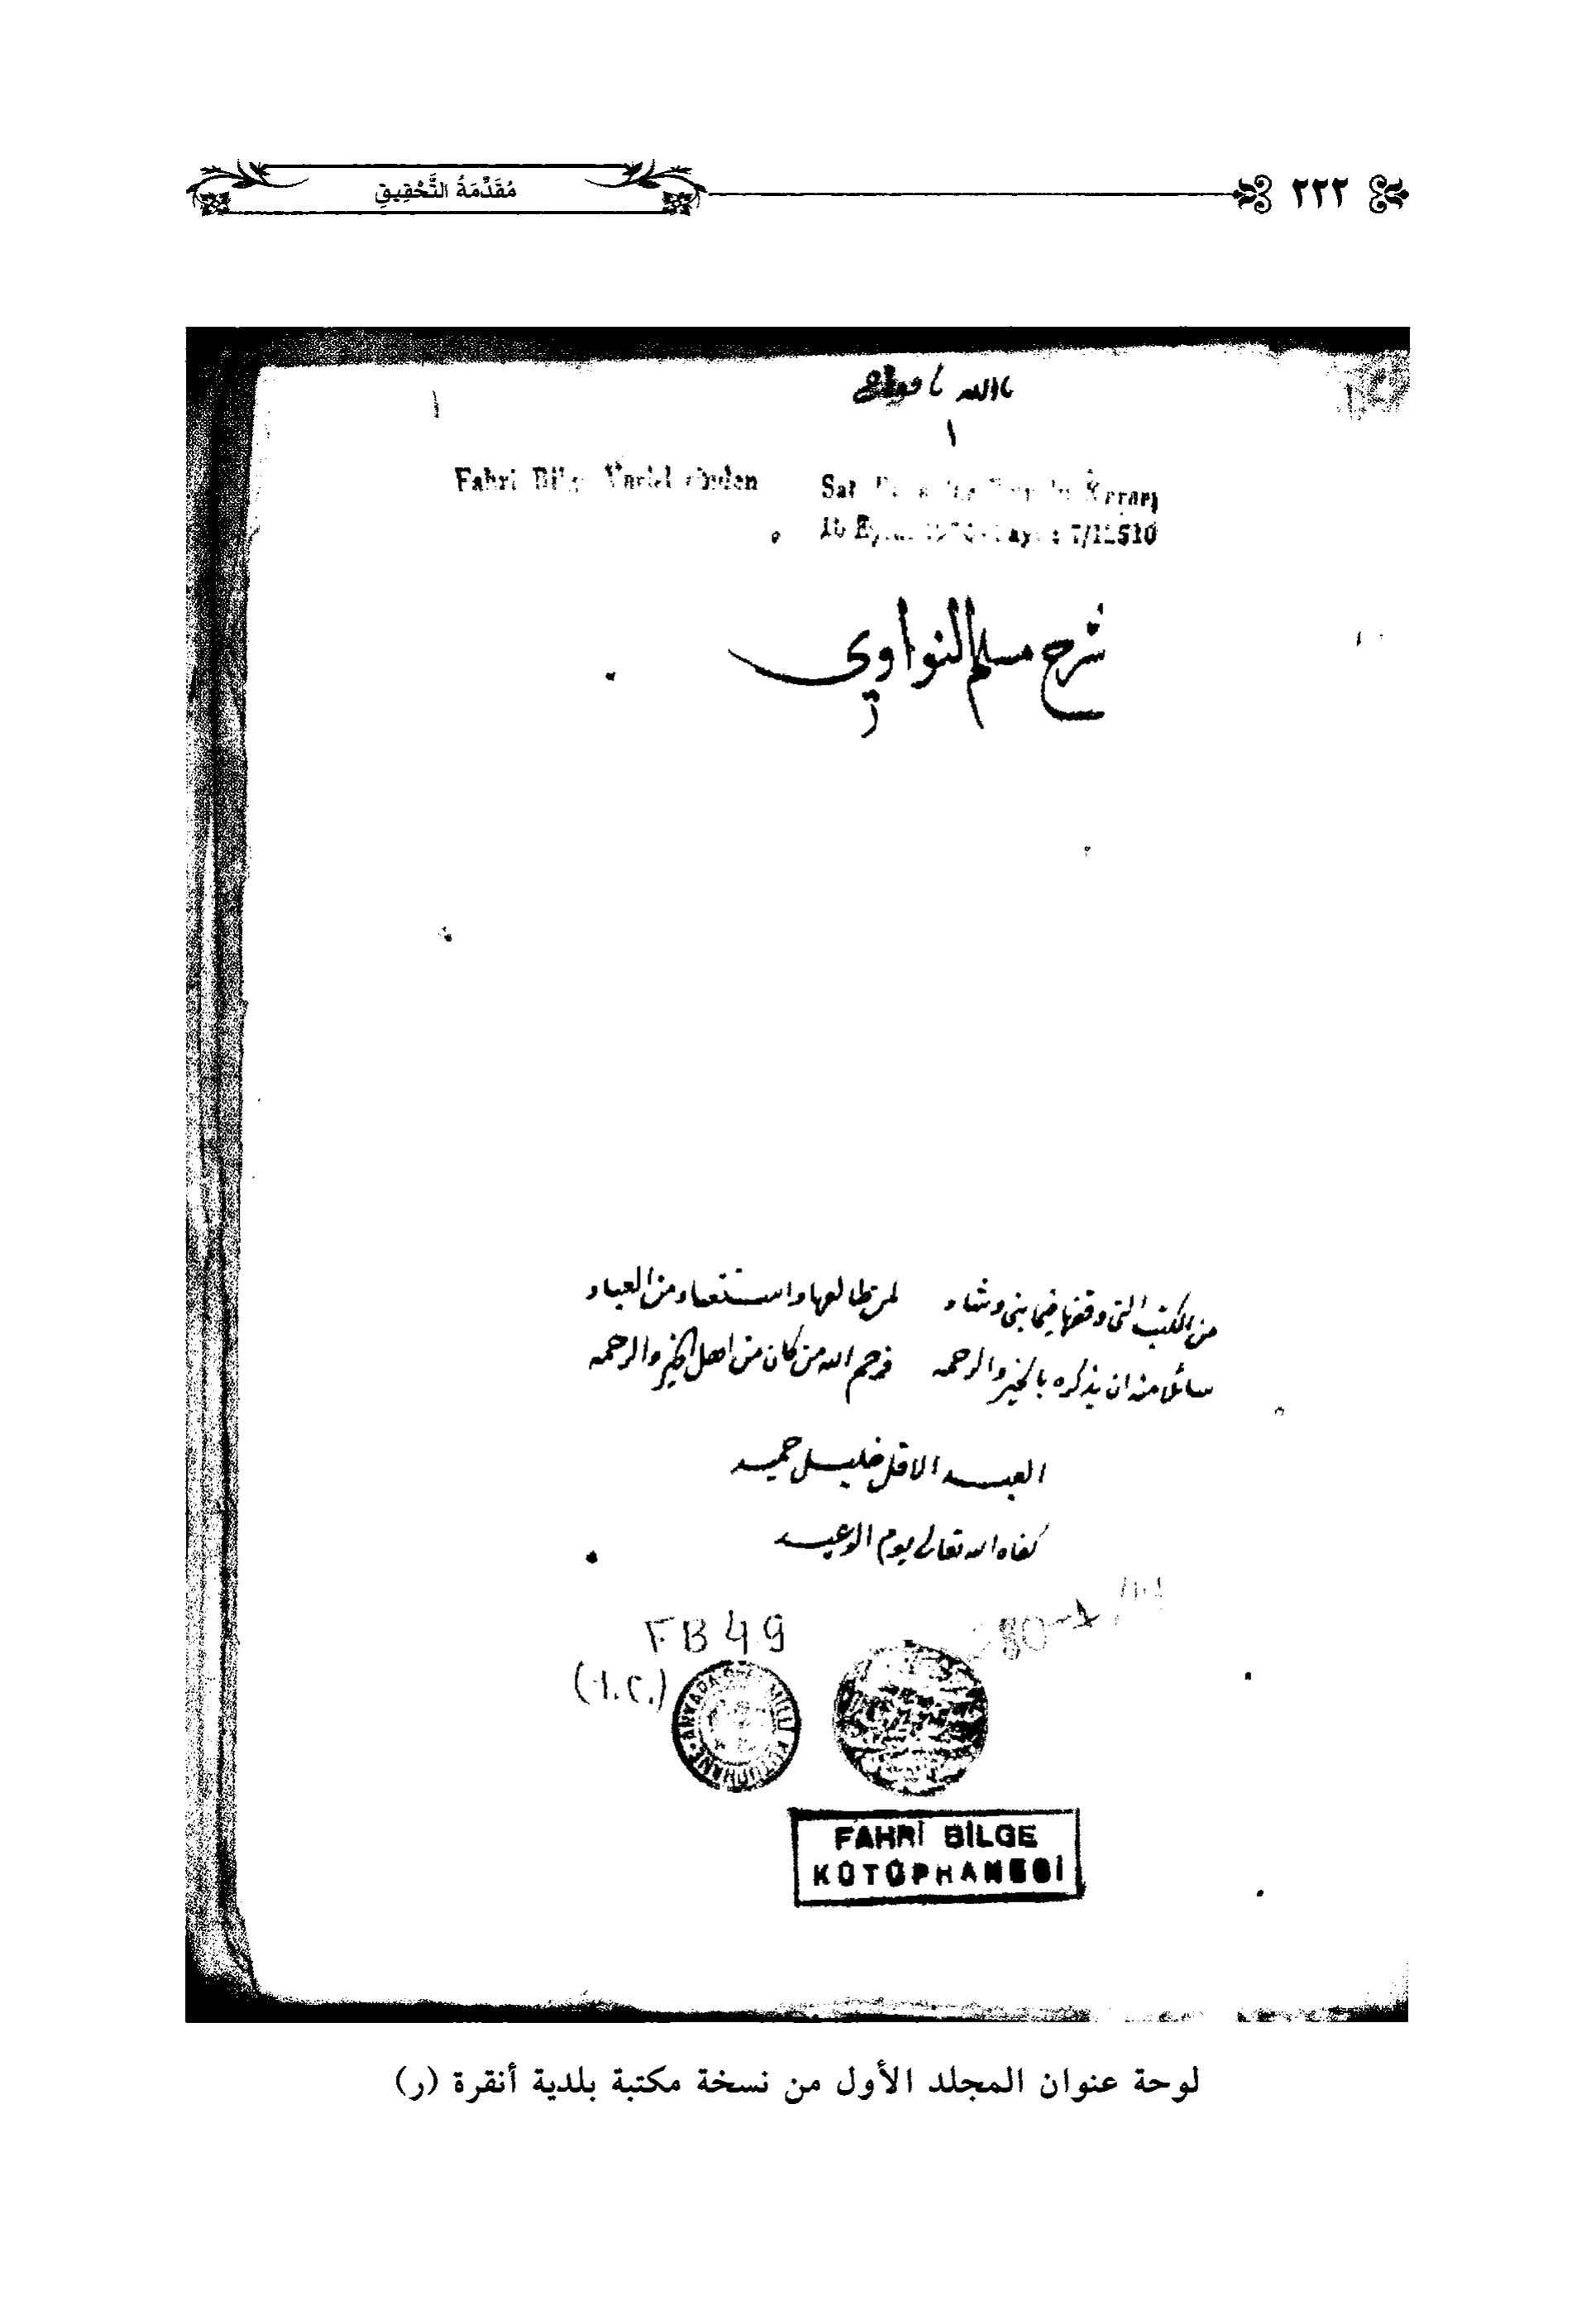 ٢٢٢
مُقَدِّمَةُ التَّحْقِيقِ
يا الله يا
١
١
Fahri
Sat
شرح مسلم النواوي
ز
من الكتب التى وقفها فيما بنى وشاد لمن طالعها واستفاد من العباد
سائلا منه ان يذكره بالخير والرحمه فرحم الله من كان من اهل الخير والرحمه
العبد الاقل خليل حميد
كفاه الله تعالى يوم الوعيد
FB 49
ANKARA MİLLİ KÜTÜPHANE
FAHRİ BİLGE
KÜTÜPHANESİ
لوحة عنوان المجلد الأول من نسخة مكتبة بلدية أنقرة (ر)